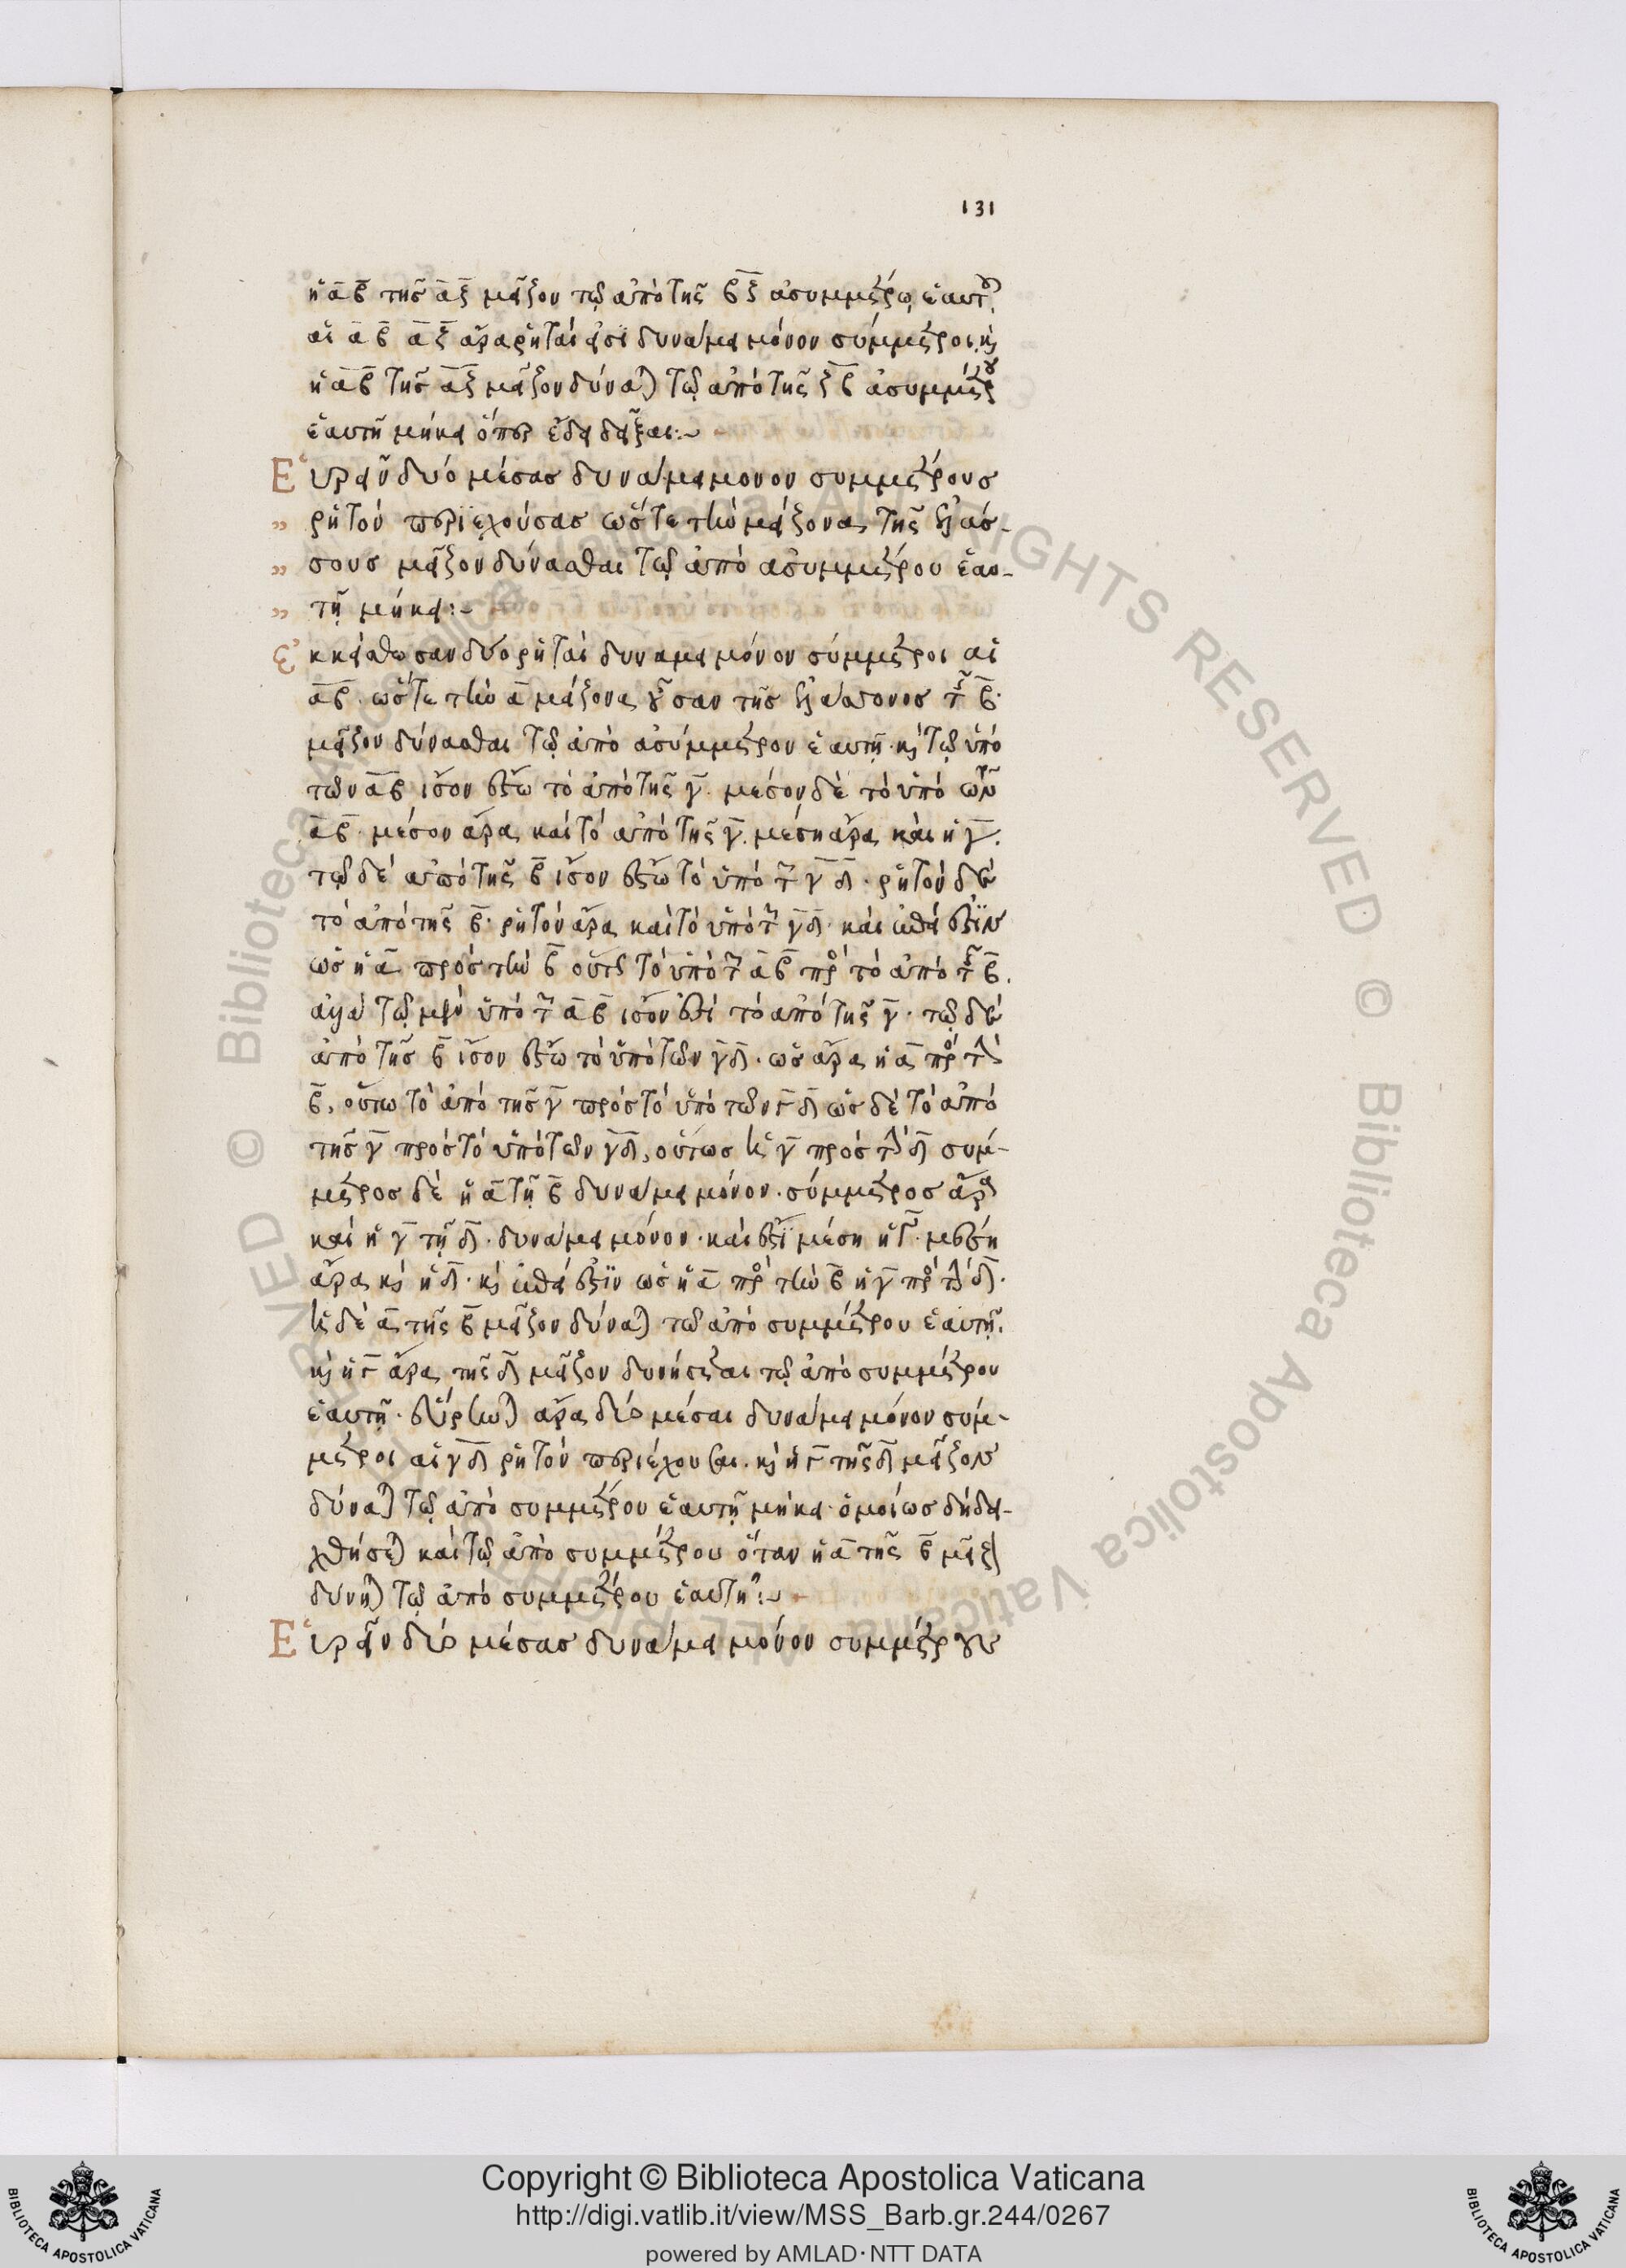 131
ἡ α̅β̅ τῆς α̅ξ̅ μεῖζον τῷ ἀπὸ τῆς β̅ξ̅ ἀσυμμέτρῳ ἑαυτ
αἱ α̅β̅ α̅ξ̅ ἄρα ῥηταί εἰσι δυνάμει μόνον σύμμετροι κ̀
ἡ α̅β̅ τῆς α̅ξ̅ μεῖζον δύνα) τῷ ἀπὸ τῆς ξ̅β̅ ἀσυμμέτρου
ἑαυτῇ μήκει ὅπερ ἔδει δεῖξαι:~
Εὑρεῖν δύο μέσας δυνάμει μονον συμμέτρους
ῥητὸν περιεχούσας ὥστε τὴν μείζονα τῆς ἐλάσ-
σους μεῖζον δύνασθαι τῷ ἀπὸ ἀσυμμέτρου ἑαυ-
τῇ μήκει:~
Ἐκκείσθωσαν δύο ῥηταὶ δυνάμει μόνον σύμμετροι αἱ
α̅β̅. ὥστε τὴν α̅ μείζονα οὖσαν τῆς ἐλάσσονος τῆς β̅.
μεῖζον δύνασθαι τῷ ἀπὸ ἀσύμμέτρου ἑαυτῇ. κ̀ τῷ ὑπὸ
τῶν α̅β̅ ἴσον ἔστω τὸ ἀπὸ τῆς γ̅. μέσον δὲ τὸ ὑπὸ τῶν
α̅β̅. μέσον ἄρα καὶ τὸ ἀπὸ τῆς γ̅. μέση ἄρα καὶ ἡ γ̅.
τῷ δὲ ἀπὸ τῆς β̅ ἴσον ἔστω τὸ ὑπὸ τ̅ γ̅δ̅. ῥητὸν δὲ
τὸ ἀπὸ τῆς β̅. ῥητὸν ἄρα καὶ τὸ ὑπὸ τ̅ γ̅δ̅. καὶ ἐπεί ἐστιν
ὡς ἡ α̅ πρὸς τὴν β̅ οὕτως τὸ ὑπὸ τ̅ α̅β̅ πρ̀ τὸ ἀπὸ τῆς β̅.
ἀλλὰ τῷ μὲν ὑπὸ τ̅ α̅β̅ ἴσον ἐστὶ τὸ ἀπὸ τῆς γ̅. τῷ δὲ
ἀπὸ τῆς β̅ ἴσον ἔστω τὸ ὑπὸ τῶν γ̅δ̅. ὡς ἄρα ἡ α̅ πρ̀ τὴν
β̅, οὕτω τὸ ἀπὸ τῆς γ̅ πρὸς τὸ ὑπὸ τῶν γ̅δ̅ ὡς δὲ τὸ ἀπὸ
τῆς γ̅ πρὸς τὸ ὑπὸ τῶν γ̅δ̅, οὕτως ἡ γ̅ πρὸς τὴν δ̅ σύμ-
μετρος δὲ ἡ α̅ τῇ β̅ δυνάμει μόνον. σύμμετρος ἄρα
καὶ ἡ γ̅ τῇ δ̅. δυνάμει μόνον. καί ἐστι μέση ἡ γ̅. μέση
ἄρα κ̀ ἡ δ̅. κ̀ ἐπεί ἐστιν ὡς ἡ α̅ πρ̀ τὴν β̅ ἡ γ̅ πρ̀ τὴν δ̅.
ἡ δὲ α̅ τῆς β̅ μεῖζον δύνα) τῷ ἀπὸ συμμέτρου ἑαυτῇ.
κ̀ ἡ γ̅ ἄρα τῆς δ̅ μεῖζον δυνήσεται τῷ ἀπὸ συμμέτρου
ἑαυτῇ. εὕρην) ἄρα δύο μέσαι δυνάμει μόνον σύμ-
μετροι αἱ γ̅δ̅ ῥητὸν περιέχουσαι. κ̀ ἡ γ̅ τῆς δ̅ μεῖζον
δύνα) τῷ ἀπὸ συμμέτρου ἑαυτῇ μήκει. ὁμοίως δὴ δει-
χθήσε) καὶ τῷ ἀπὸ συμμέτρου ὅταν ἡ α̅ τῆς β̅ μεῖζ
δύνη) τῷ ἀπὸ συμμέτρου ἑαυτῇ:~
Εὑρεῖν δύο μέσας δυνάμει μόνον συμμέτρους
Copyright © Biblioteca Apostolica Vaticana
http://digi.vatlib.it/view/MSS_Barb.gr.244/0267
powered by AMLAD·NTT DATA